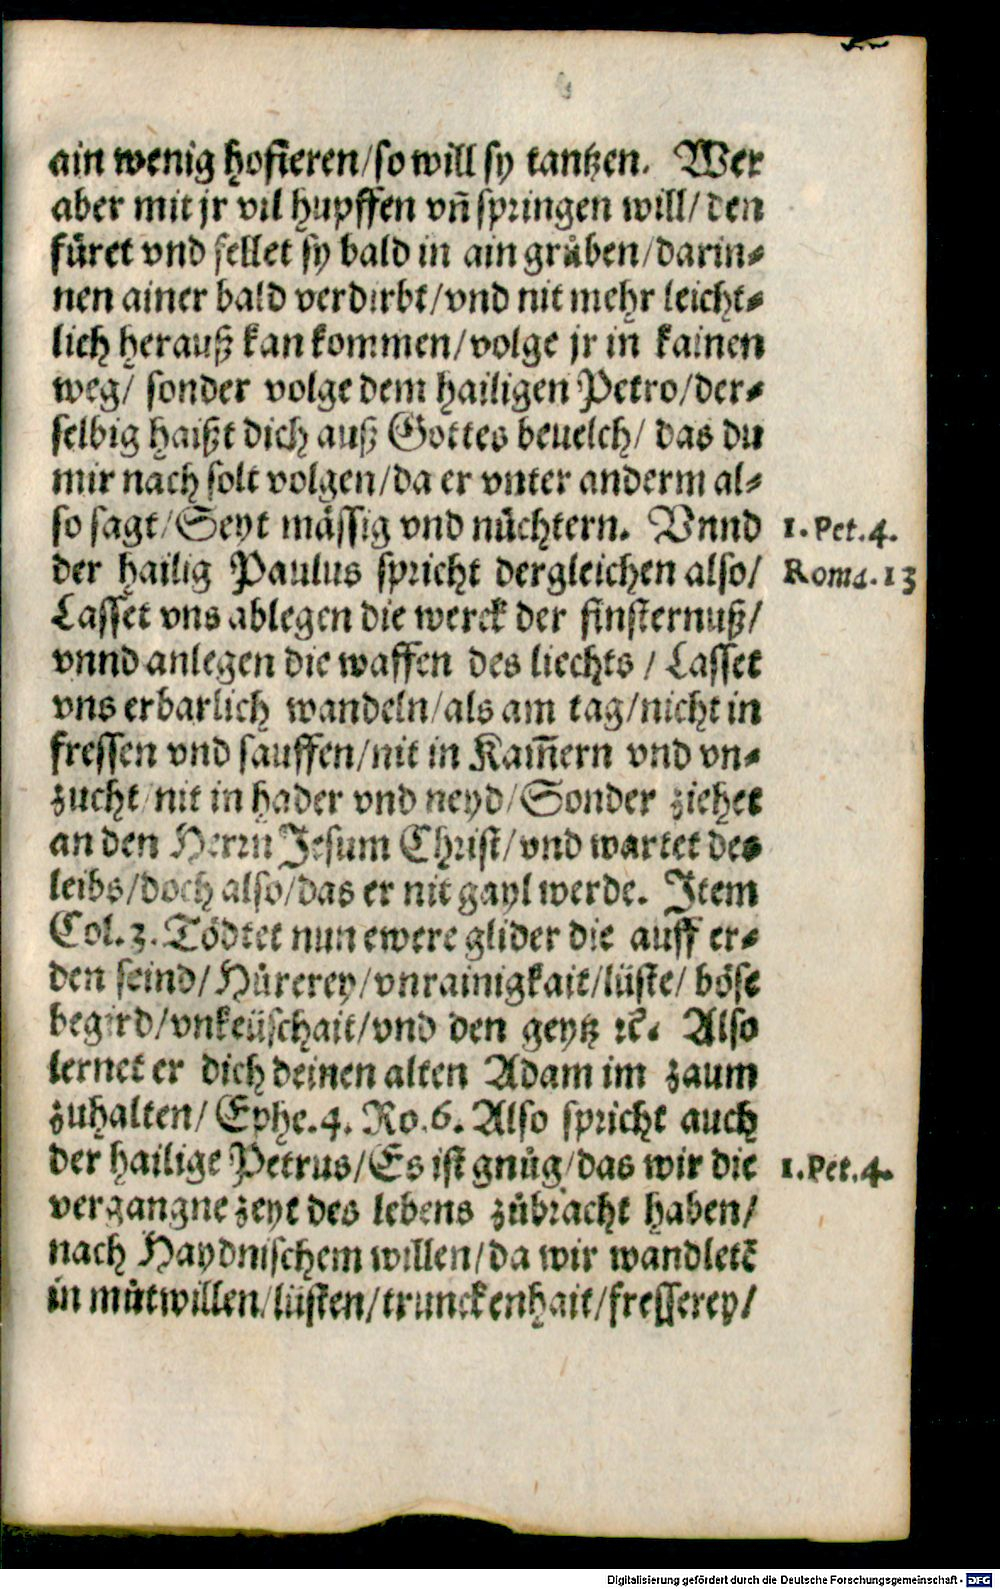 ain wenig hofieren/so will sy tantzen. Wer
aber mit jr vil hupffen vñ springen will/ den
fůret vnd fellet sy bald in ain grůben/darin⸗
nen ainer bald verdirbt/vnd nit mehr leicht⸗
lich herauß kan kommen/volge jr in kainen
weg/ sonder volge dem hailigen Petro/der⸗
selbig haißt dich auß Gottes beuelch/ das du
mir nach solt volgen/da er vnter anderm al⸗
so sagt/Seyt mässig vnd nůchtern. Vnnd
1. Pet. 4.
der hailig Paulus spricht dergleichen also/
Roma. 13
Lasset vns ablegen die werck der finsternuß/
vnnd anlegen die waffen des liechts / Lasset
vns erbarlich wandeln/als am tag/nicht in
fressen vnd sauffen/nit in Kam̃ern vnd vn⸗
zucht/nit in hader vnd neyd/Sonder ziehet
an den Herrn Jesum Christ/vnd wartet des
leibs/doch also/das er nit gayl werde. Item
Col. 3. Tödtet nun ewere glider die auff er⸗
den seind/Hůrerey/vnrainigkait/lüste/ böse
begird/vnkeüschait/vnd den geytz ꝛc. Also
lernet er dich deinen alten Adam im zaum
zuhalten/ Ephe. 4. Ro. 6. Also spricht auch
der hailige Petrus/Es ist gnůg/das wir die
1. Pet. 4.
vergangne zeyt des lebens zůbracht haben/
nach Haydnischem willen/da wir wandletẽ
in můtwillen/lüsten/trunckenhait/fresserey/
Digitalisierung gefördert durch die Deutsche Forschungsgemeinschaft - DFG